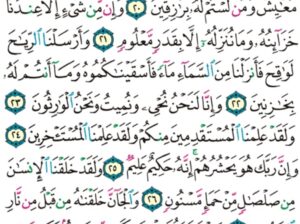 مَعَٰيِشَ وَمَن لَّسْتُمْ لَهُۥ بِرَٰزِقِينَ ٢٠ وَإِن مِّن شَىْءٍ إِلَّا عِندَنَا
خَزَآئِنُهُۥ وَمَا نُنَزِّلُهُۥٓ إِلَّا بِقَدَرٍ مَّعْلُومٍ ٢١ وَأَرْسَلْنَا ٱلرِّيَٰحَ
لَوَٰقِحَ فَأَنزَلْنَا مِنَ ٱلسَّمَآءِ مَآءً فَأَسْقَيْنَٰكُمُوهُ وَمَآ أَنتُمْ لَهُۥ
بِخَٰزِنِينَ ٢٢ وَإِنَّا لَنَحْنُ نُحْىِۦ وَنُمِيتُ وَنَحْنُ ٱلْوَٰرِثُونَ ٢٣
وَلَقَدْ عَلِمْنَا ٱلْمُسْتَقْدِمِينَ مِنكُمْ وَلَقَدْ عَلِمْنَا ٱلْمُسْتَـْٔخِرِينَ ٢٤
وَإِنَّ رَبَّكَ هُوَ يَحْشُرُهُمْ ۚ إِنَّهُۥ حَكِيمٌ عَلِيمٌ ٢٥ وَلَقَدْ خَلَقْنَا ٱلْإِنسَٰنَ
مِن صَلْصَٰلٍ مِّنْ حَمَإٍ مَّسْنُونٍ ٢٦ وَٱلْجَآنَّ خَلَقْنَٰهُ مِن قَبْلُ مِن نَّارِ